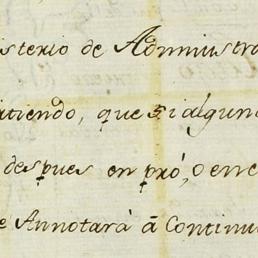 isterio de Admiistra
itiendo, que si algun
despues en pró, o en c
e Annotará â Continu